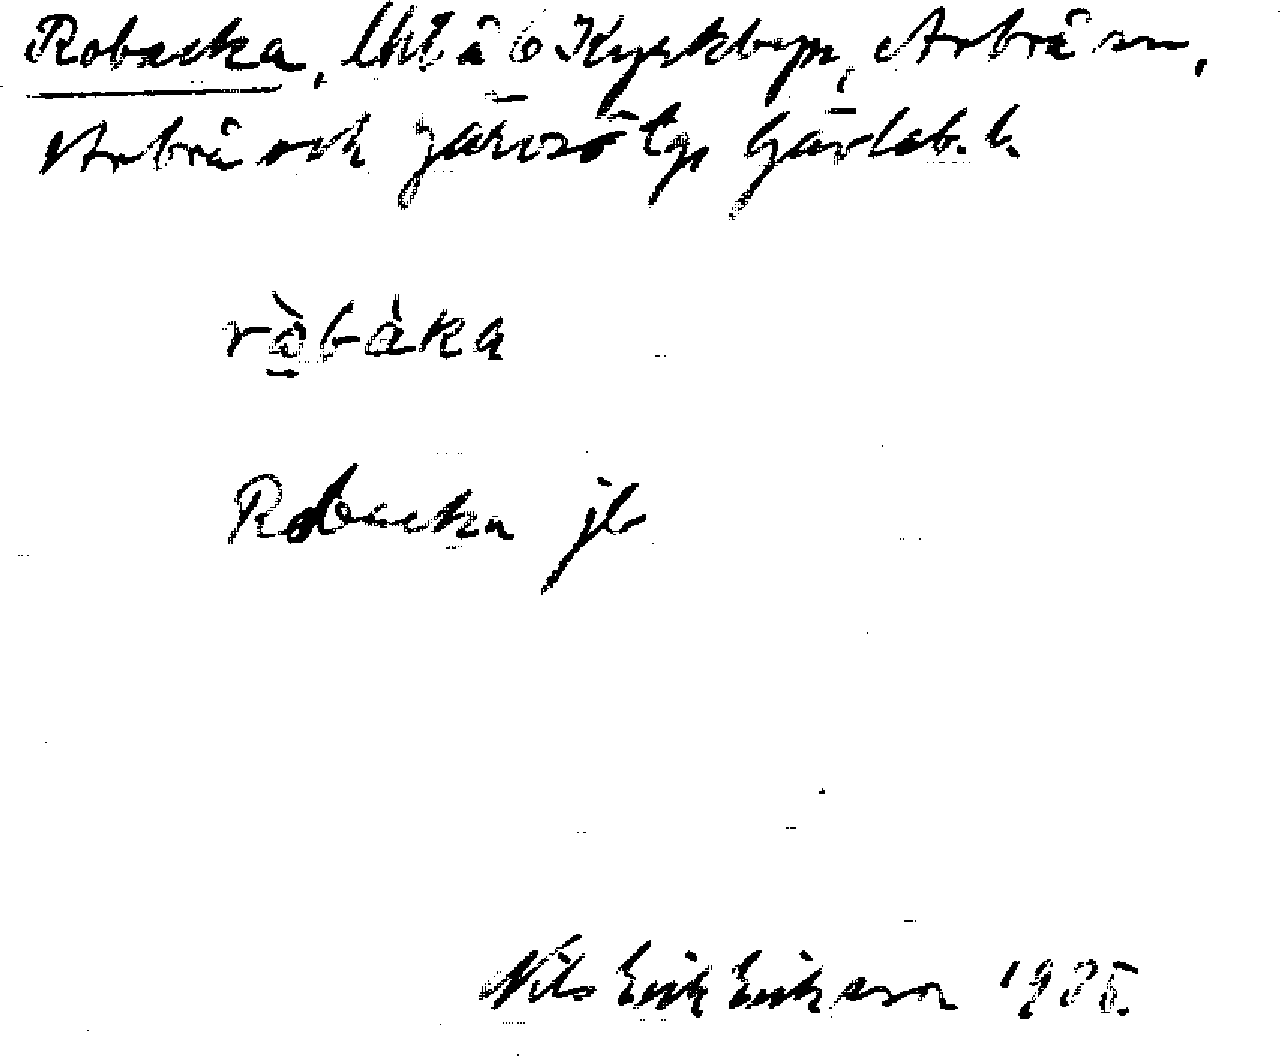 Robacka, lht å 6 Kyrkbyn, Arbrå sn,
Arbrå och Järvsö tg, Gävleb. l.
rå̲̀bàka
Robacka jb
Nils Erik Eriksson 1935.